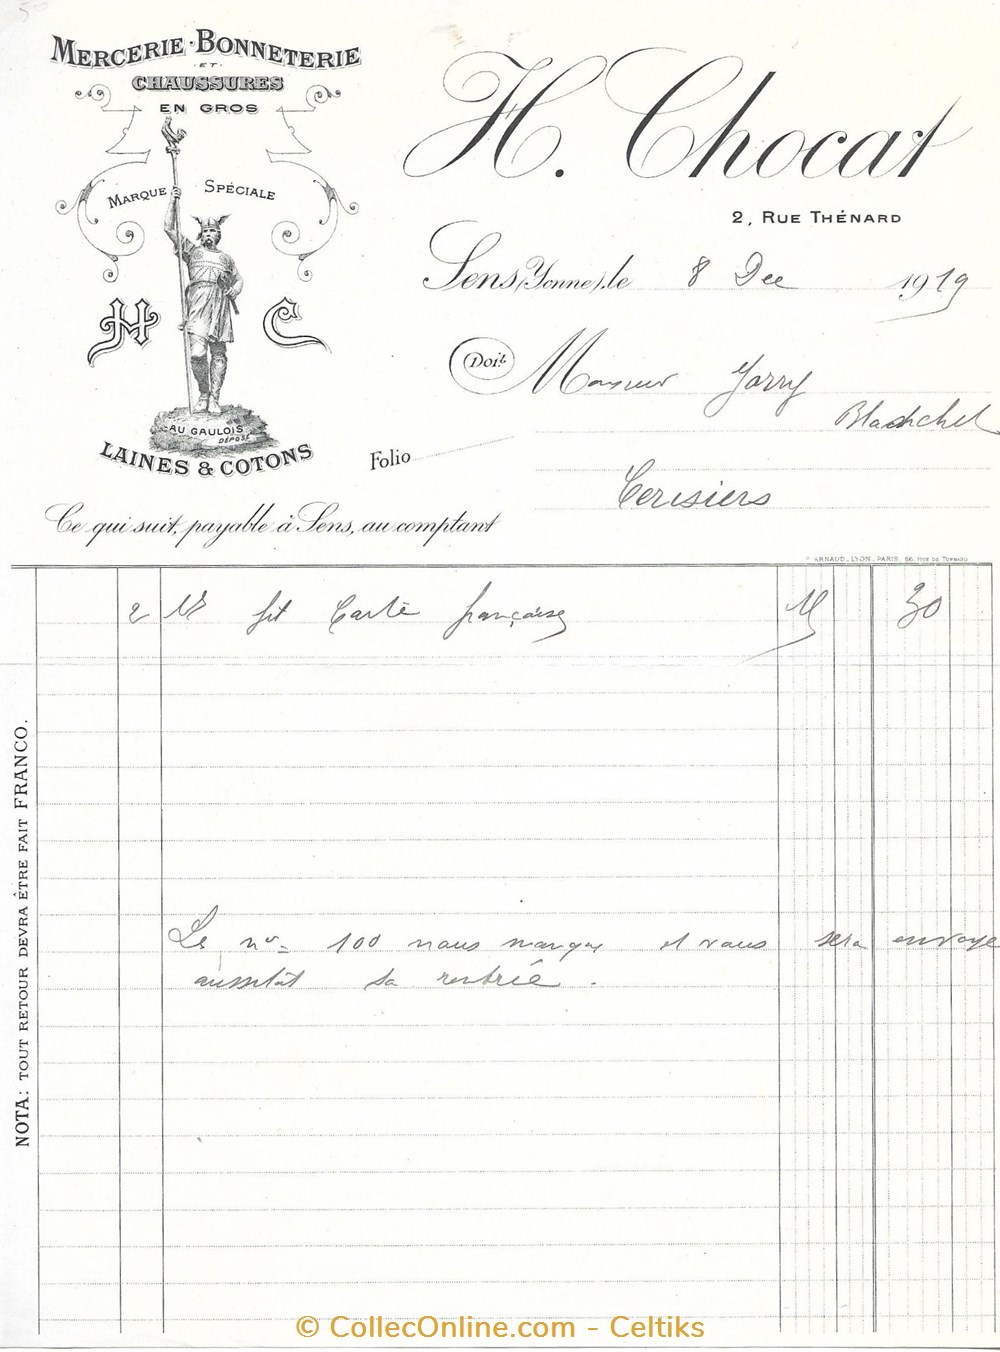 MERCERIE-BONNETERIE
ET
CHAUSSURES
EN GROS
MARQUE SPÉCIALE
H C
AU GAULOIS
DÉPOSÉ
LAINES & COTONS
H. Chocat
2, RUE THÉNARD
Sens, (Yonne), le 8 Dec 1919
Doit Monsieur Jarry
Cerisiers
Folio
Ce qui suit, payable à Sens, au comptant
P. ARNAUD_LYON_PARIS, 66, RUE DE TURBIGO
2 fit Carte française 15 30
Le no= 100 nous manque et vous sera envoye
aussitôt sa rentrée.
NOTA: TOUT RETOUR DEVRA ÊTRE FAIT FRANCO.
© CollecOnline.com - Celtiks